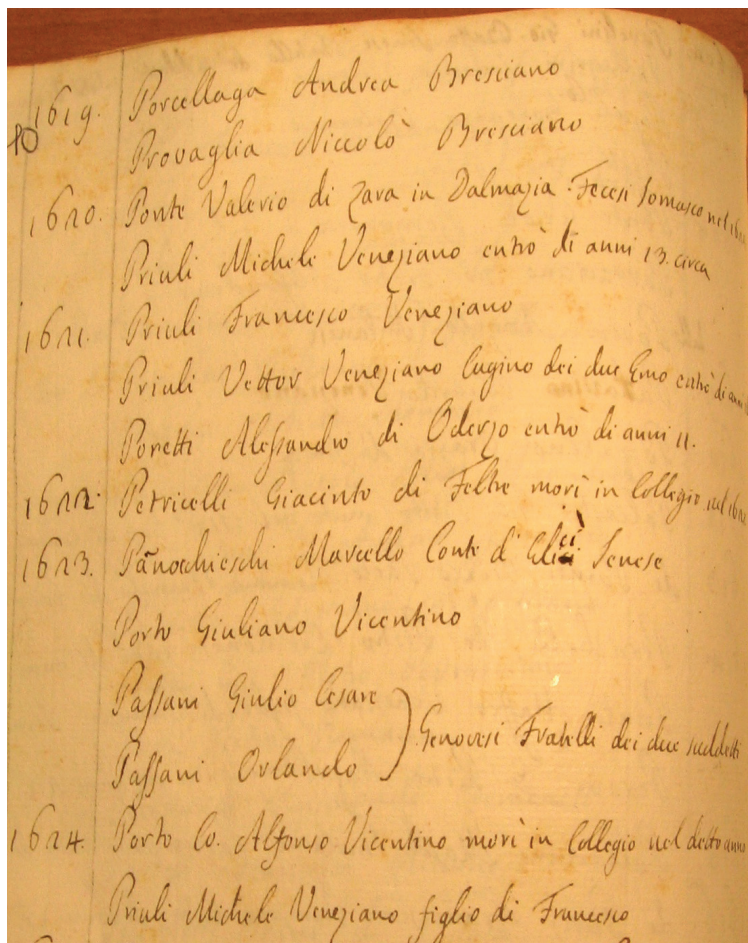 1619. Porcellaga Andrea Bresciano
Provaglia Niccolò Bresciano
1620. Ponte Valerio di Zara in Dalmazia. Fecesi Somasco nel
Priuli Michele Veneziano entrò di anni 13. circa
1621. Priuli Francesco Veneziano
Priuli Vettor Veneziano Cugino dei due Emo entrò di anni
Poretti Alessandro di Oderzo entrò di anni 11.
1622. Petricelli Giacinto di Feltre morì in Collegio nel
1623. Panochieschi Marcello Conte d' Elci Senese
Porto Giuliano Vicentino
Passani Giulio Cesare
Passani Orlando
Genovesi Fratelli dei due suddetti
1624. Porto Co. Alfonso Vicentino morì in Collegio nel detto anno
Priuli Michele Veneziano figlio di Francesco